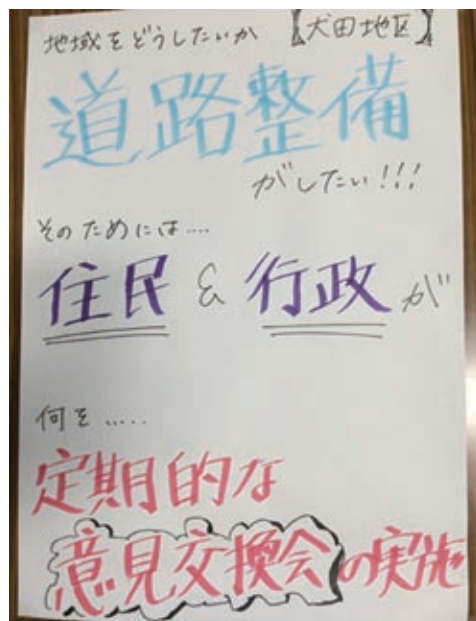 地域をどうしたいか 【犬田地区】
道路整備
がしたい!!!
そのためには....
住民 & 行政 が
何を.....
定期的な
意見交換会の実施